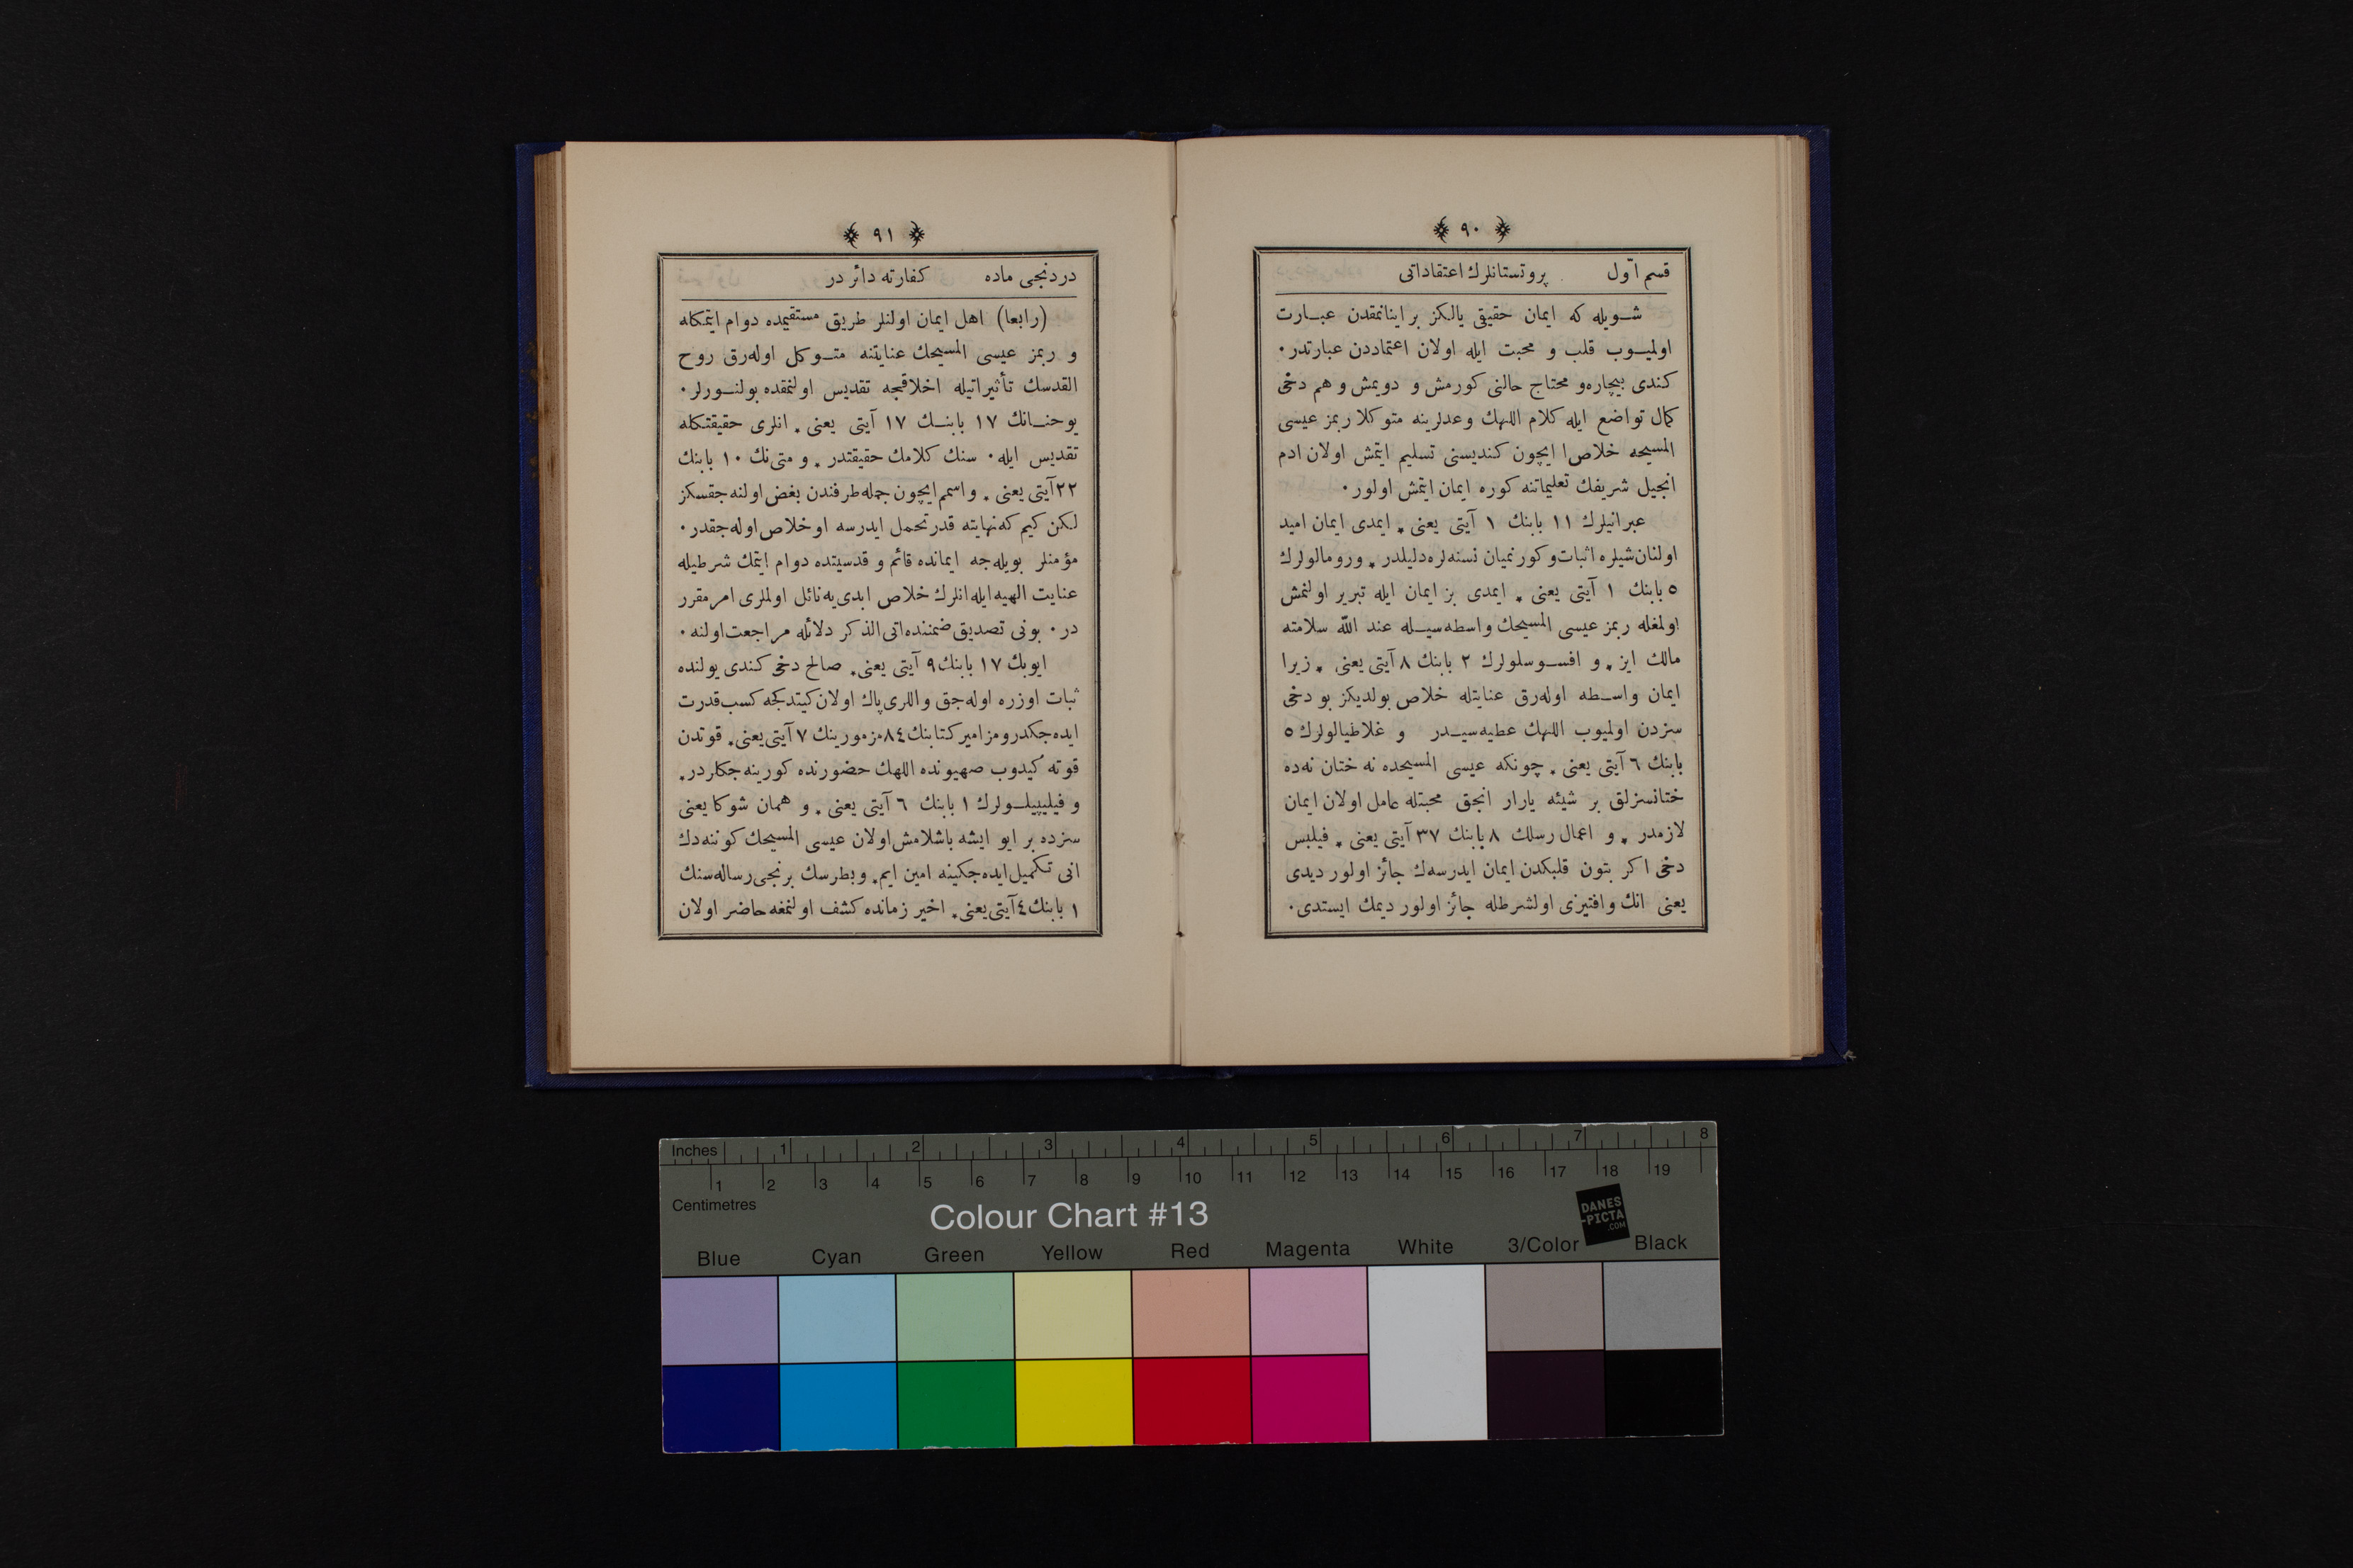 ﴿ ٩٠ ﴾
قسم اّول پروتستانلرك اعتقاداتی
شـويله كه ايمان حقيقی يالكز بر اينانمقدن عبـارت
اولميـوب قلب و محبت ايله اولان اعتماددن عبارتدر٠
كندی بيچاره‌و محتاج حالنی كورمش و دويمش و هم دخی
كمال تواضع ايله كلام اللهك وعدلرينه متوكلا ربمز عيسی
المسيحه خلاصا ايچون كنديسنی تسليم ايتمش اولان ادم
انجيل شريفك تعليماتنه كوره ايمان ايتمش اولور٠
عبرانيلرك ١١ بابنك ١ آيتی يعنی ٭ ايمدی ايمان اميد
اولنان شيلره اثبات و كورنميان نسنه‌لره دليلدر ٭ و رومالولرك
٥ بابنك ١ آيتی يعنی ٭ ايمدی بز ايمان ايله تبرير اولنمش
اولمغله ربمز عيسی المسيحك واسطه‌سيـله عند الله سلامته
مالك ايز ٭ و افسـوسلولرك ٢ بابنك ٨ آيتی يعنی ٭ زيرا
ايمان واسـطه اوله‌رق عنايتله خلاص بولديكز بو دخی
سزدن اولميوب اللهك عطيه‌سيـدر و غلاطيالولرك ٥
بابنك ٦ آيتی يعنی ٭ چونكه عيسی المسيحده نه ختان نه‌ده
ختانسزلق بر شيئه يارار انجق محبتله عامل اولان ايمان
لازمدر ٭ و اعمال رسلك ٨ بابنك ٣٧ آيتی يعنی ٭ فيلبس
دخی اكر بتون قلبكدن ايمان ايدرسه‌ك جائز اولور ديدی
يعنی انك وافتيزی اولشرطله جائز اولور ديمك ايستدی٠
﴿ ٩١ ﴾
دردنجی ماده كفارته دائر در
(رابعا) اهل ايمان اولنلر طريق مستقيمده دوام ايتمكله
و ربمز عيسی المسيحك عنايتنه متـوكل اوله‌رق روح
القدسك تأثيراتيله اخلاقجه تقديس اولنمقده بولنـورلر٠
يوحنـانك ١٧ بابنـك ١٧ آيتی يعنی ٭ انلری حقيقتكله
تقديس ايله٠ سنك كلامك حقيقتدر ٭ و متی‌نك ١٠ بابنك
٢٢ آيتی يعنی ٭ و اسمم ايچون جمله طرفندن بغض اولنه‌جقسكز
لكن كيم كه نهايته قدر تحمل ايدرسه او خلاص اوله‌جقدر٠
مؤمنلر بويله‌جه ايمانده قائم و قدسيتده دوام ايتمك شرطيله
عنايت الهيه ايله انلرك خلاص ابدی‌يه نائل اولملری امر مقرر
در٠ بونی تصديق ضمننده اتی الذكر دلائله مراجعت اولنه٠
ايوبك ١٧ بابنك ٩ آيتی يعنی ٭ صالح دخی كندی يولنده
ثبات اوزره اوله‌جق و اللری پاك اولان كيتدكجه كسب قدرت
ايده‌جكدر و مزامير كتابنك ٨٤ مزمورينك ٧ آيتی يعنی ٭ قوتدن
قوته كيدوب صهيونده اللهك حضورنده كورينه‌جكلردر ٭
و فيليپيلـولرك ١ بابنك ٦ آيتی يعنی ٭ و همان شوكا يعنی
سزده بر ايو ايشه باشلامش اولان عيسی المسيحك كوننه‌دك
انی تكميل ايده‌جكينه امين ايم ٭ و بطرسك برنجی رساله‌سنك
١ بابنك ٤ آيتی يعنی ٭ اخير زمانده كشف اولنمغه حاضر اولان
Inches 1 2 3 4 5 6 7 8
1 2 3 4 5 6 7 8 9 10 11 12 13 14 15 16 17 18 19
Centimetres
Colour Chart #13
DANES
-PICTA
.COM
Blue Cyan Green Yellow Red Magenta White 3/Color Black